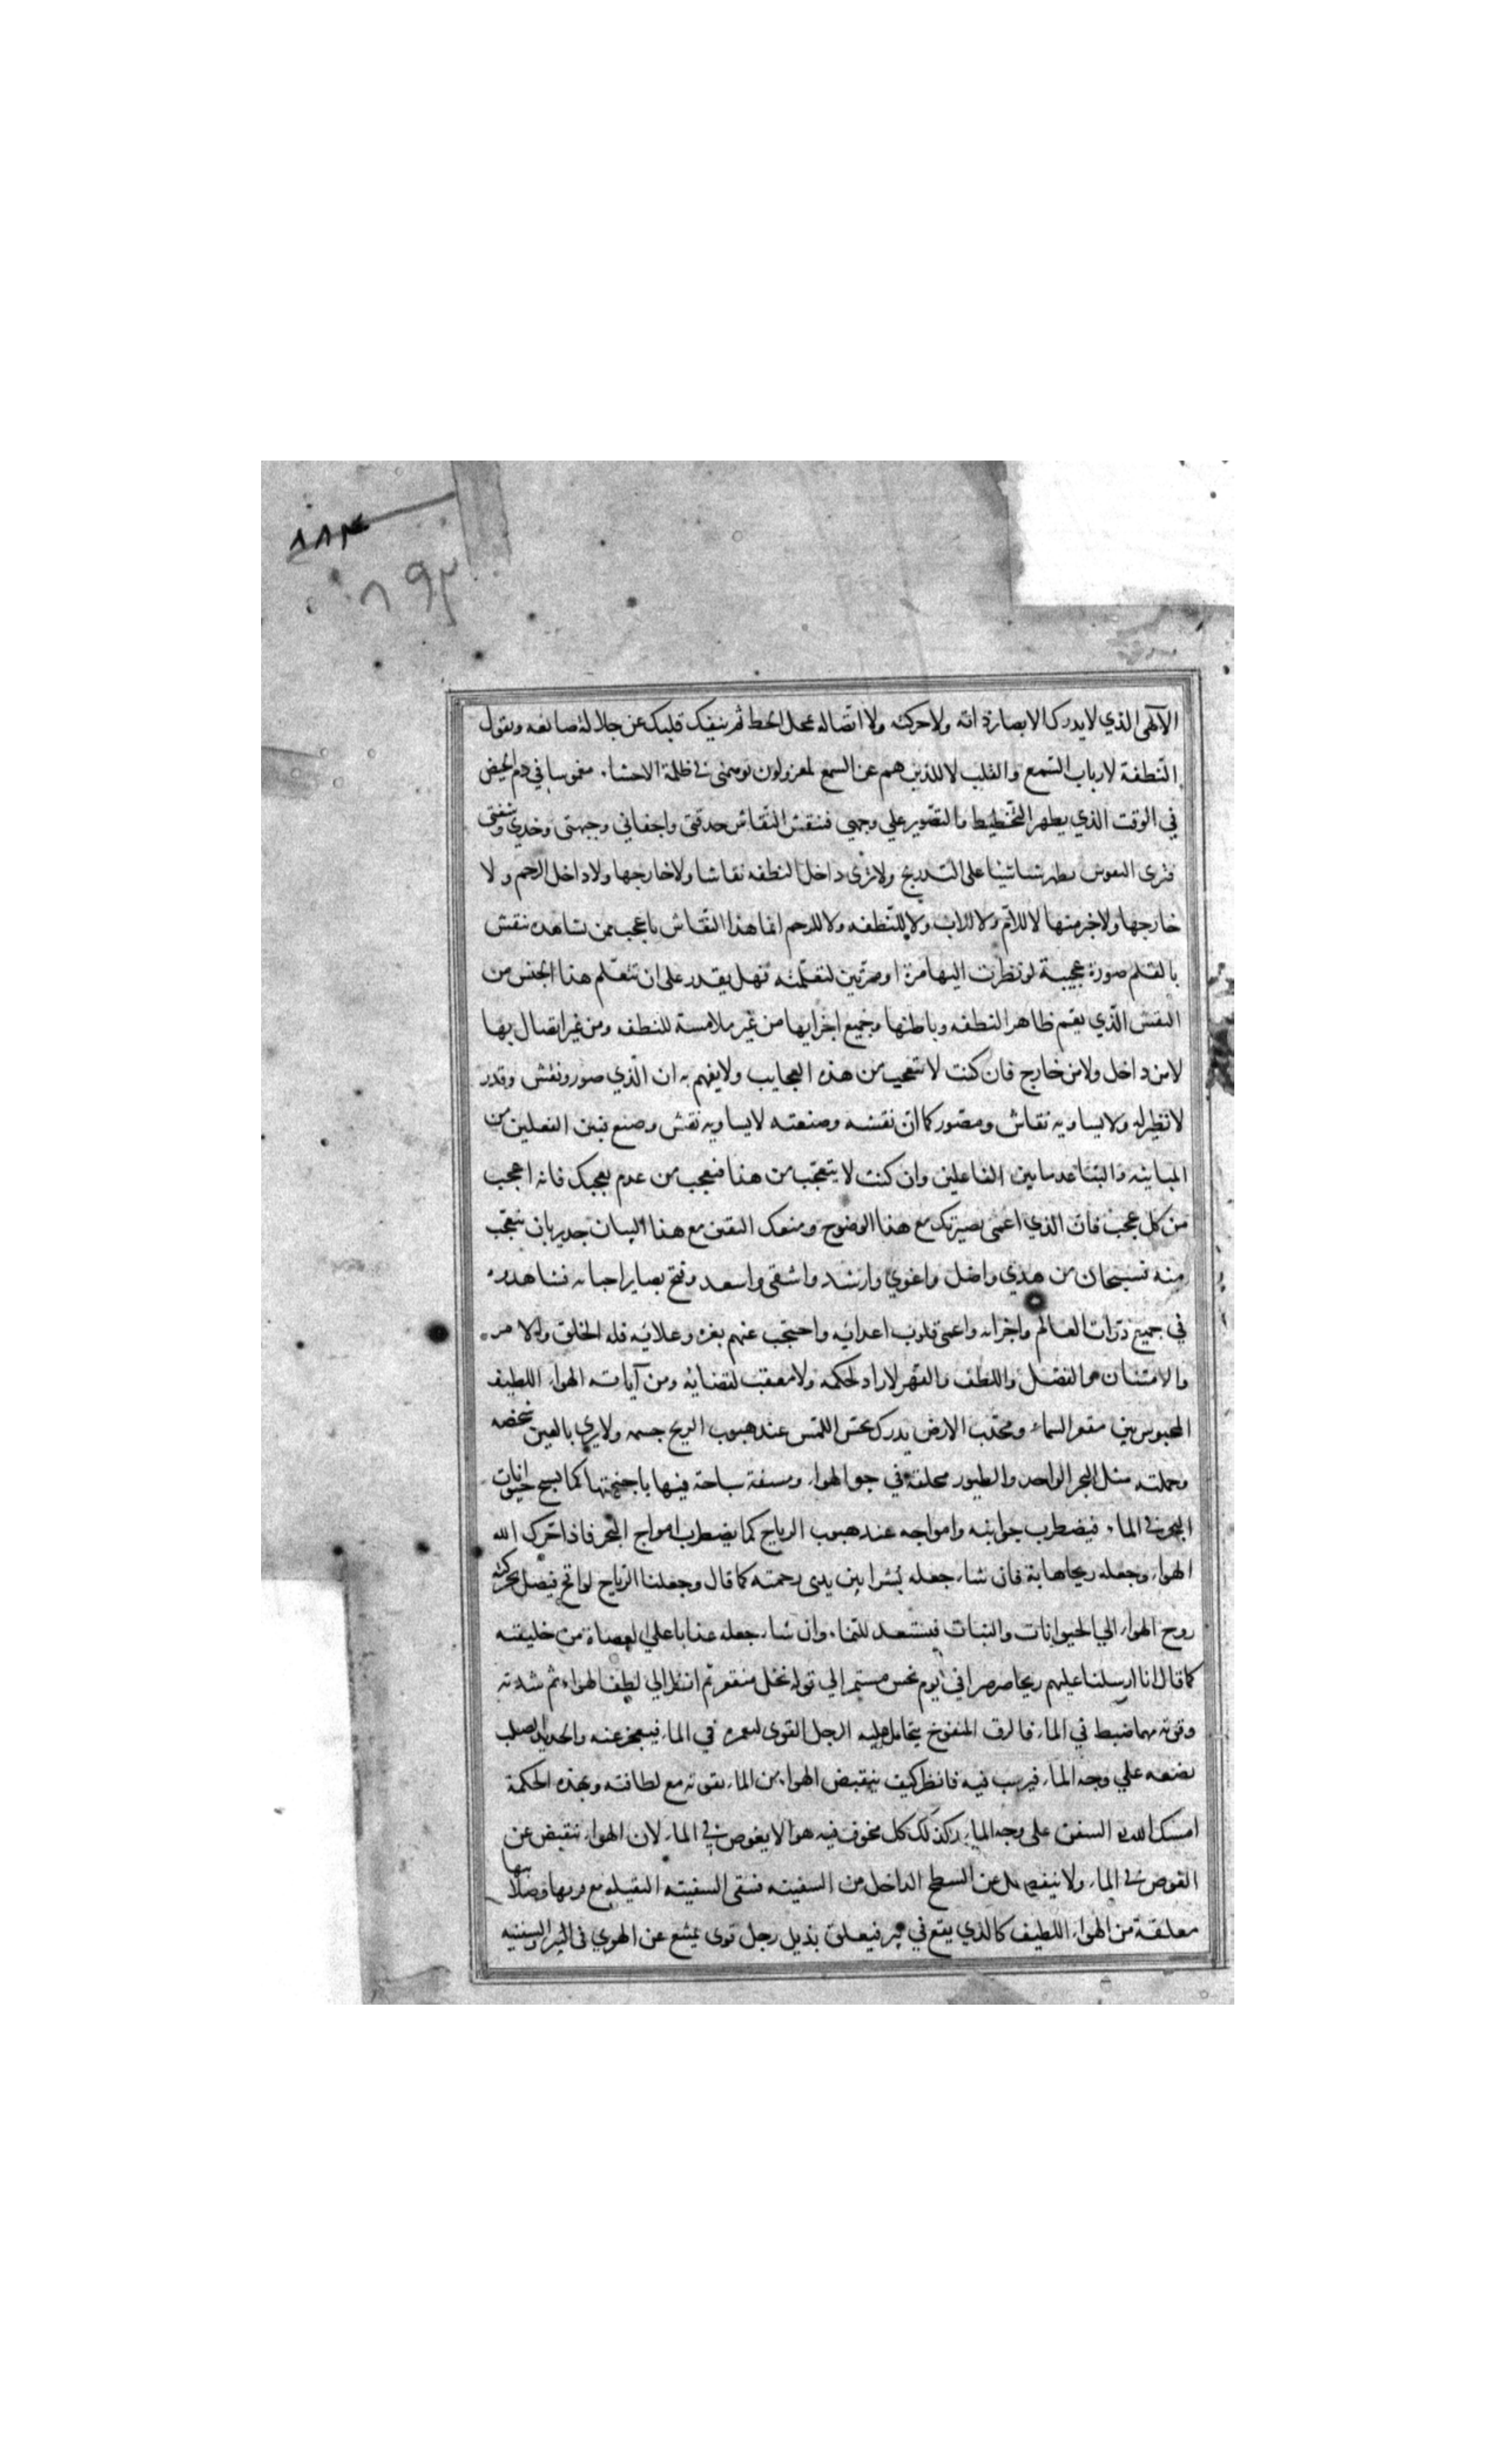 ٨٨٣
٨٩٣
الآلهى الذي لا يدرك الابصار ذاته ولا حركته ولا اتصاله بمحل الخط ثم ينفك قلبك عن جلالة صانعه وتقول
النطفة لارباب السمع والقلب لا للذين هم عن السمع لمعزولون توهمنى في ظلمة الاحشاء مغموسا في دم الحيض
في الوقت الذي يظهر التخطيط والتصوير علي وجهي فنقش النقاش حدقتى واجفاني وجبهتى وخدي وشفتى
فترى النقوش يظهر شيئا شيئا على التدريج ولا ترى داخل النطفه نقاشا ولا خارجها ولا داخل الرحم ولا
خارجها ولا خبر منها لا للام ولا للاب ولا للنطفه ولا للرحم افما هذا النقاش باعجب ممن تشاهده ينقش
بالقلم صورة عجيبة لو نظرت اليها مرة او مرتين لتعلمته فهل يقدر على ان تتعلم هذا الجنس من
النقش الذي يعم ظاهر النطفه وباطنها وجميع اجزايها من غير ملامسة للنطفه ومن غير اتصال بها
لا من داخل ولا من خارج فان كنت لا تتعجب من هذه العجايب ولا يفهم به ان الذي صور ونقش وقدر
لا نظير له ولا يساويه نقاش ومصور كما ان نقشه وصنعته لا يساويه نقش وصنع فبين الفعلين من
المباينه والتباعد ما بين الفاعلين وان كنت لا يتعجب من هذا فتعجب من عدم تعجبك فانه اعجب
من كل عجب فان الذي اعمى بصيرتك مع هذا الوضوح ومنعك اليقين مع هذا البيان جدير بان يتعجب
منه فسبحان من هدي واضل واغوي وارشد واشقى واسعد وفتح بصاير احبابه فشاهدوه
في جميع ذرات العالم واجزائه واعمى قلوب اعدائه واحتجب عنهم بعزه وعلائه فله الخلق والامر
والامتنان والفضل واللطف والقهر لا راد لحكمه ولا معقب لقضائه ومن آياته الهواء اللطيف
المحبوس بين مقعر السماء ومحدب الارض يدرك بحس اللمس عند هبوب الريح جسمه ولا يري بالعين شخصه
وجملته مثل البحر الواحد والطيور محلقة في جو الهواء ومستفة سباحة فيها باجنحتها كما يسبح حيوانات
البحر في الماء فيضطرب جوانبه وامواجه عند هبوب الرياح كما يضطرب امواج البحر فاذا حرك الله
الهواء وجعله ريحا هابة فان شاء جعله بشرا بين يدى رحمته كما قال وجعلنا الرياح لواقح فيصل بحركته
روح الهواء الي الحيوانات والنبات فيستعد للنماء وان شاء جعله عذابا علي العصاة من خليقته
كما قال انا ارسلنا عليهم ريحا صرصرا في يوم نحس مستمر الي قوله نخل منقعر ثم انظر الي لطف الهواء ثم شدته
وقوته مهما ضبط في الماء فالزق المنفوخ يتحامل عليه الرجل القوى ليغمره في الماء فيعجز عنه والحديد الصلب
يضعه علي وجه الماء فيرسب فيه فانظر كيف ينقبض الهواء من الماء بقوته مع لطافته وبهذه الحكمة
امسك الله السفن على وجه الماء وكذلك كل مجوف فيه هوا لا يغوص في الماء لان الهواء ينقبض عن
الغوص في الماء ولا ينفصل عن السطح الداخل من السفينه فتبقى السفينه الثقيله مع قوتها وصلابتها
معلقة من الهواء اللطيف كالذي يقع في بير فيتعلق بذيل رجل قوى يمتنع عن الهوي في البير والسفينه